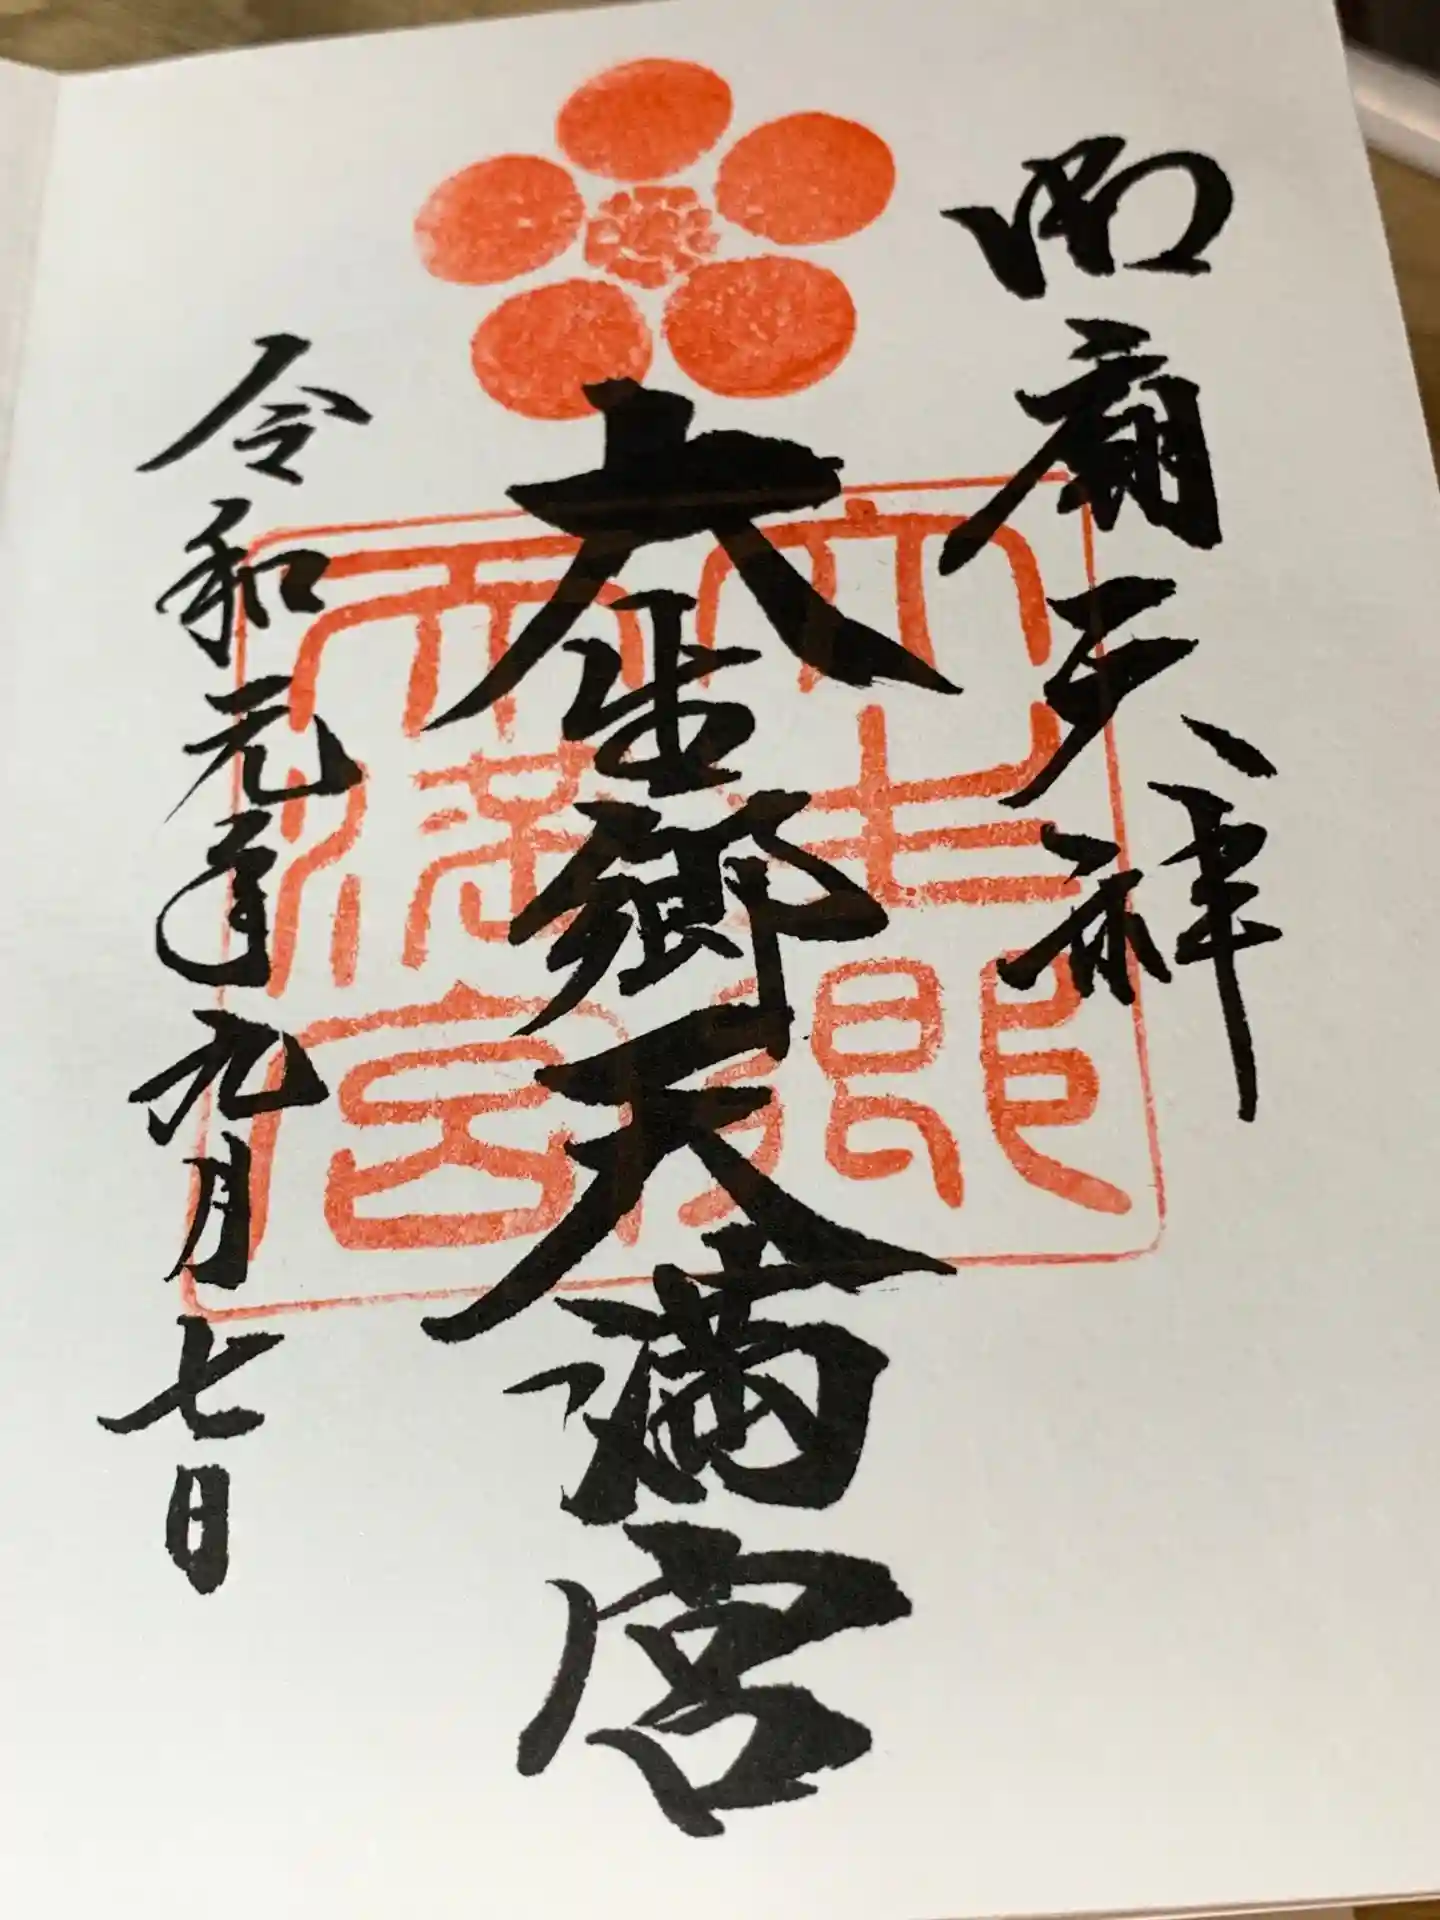 御廟天神
大生郷天満宮
令和元年九月七日
大生郷
天満宮